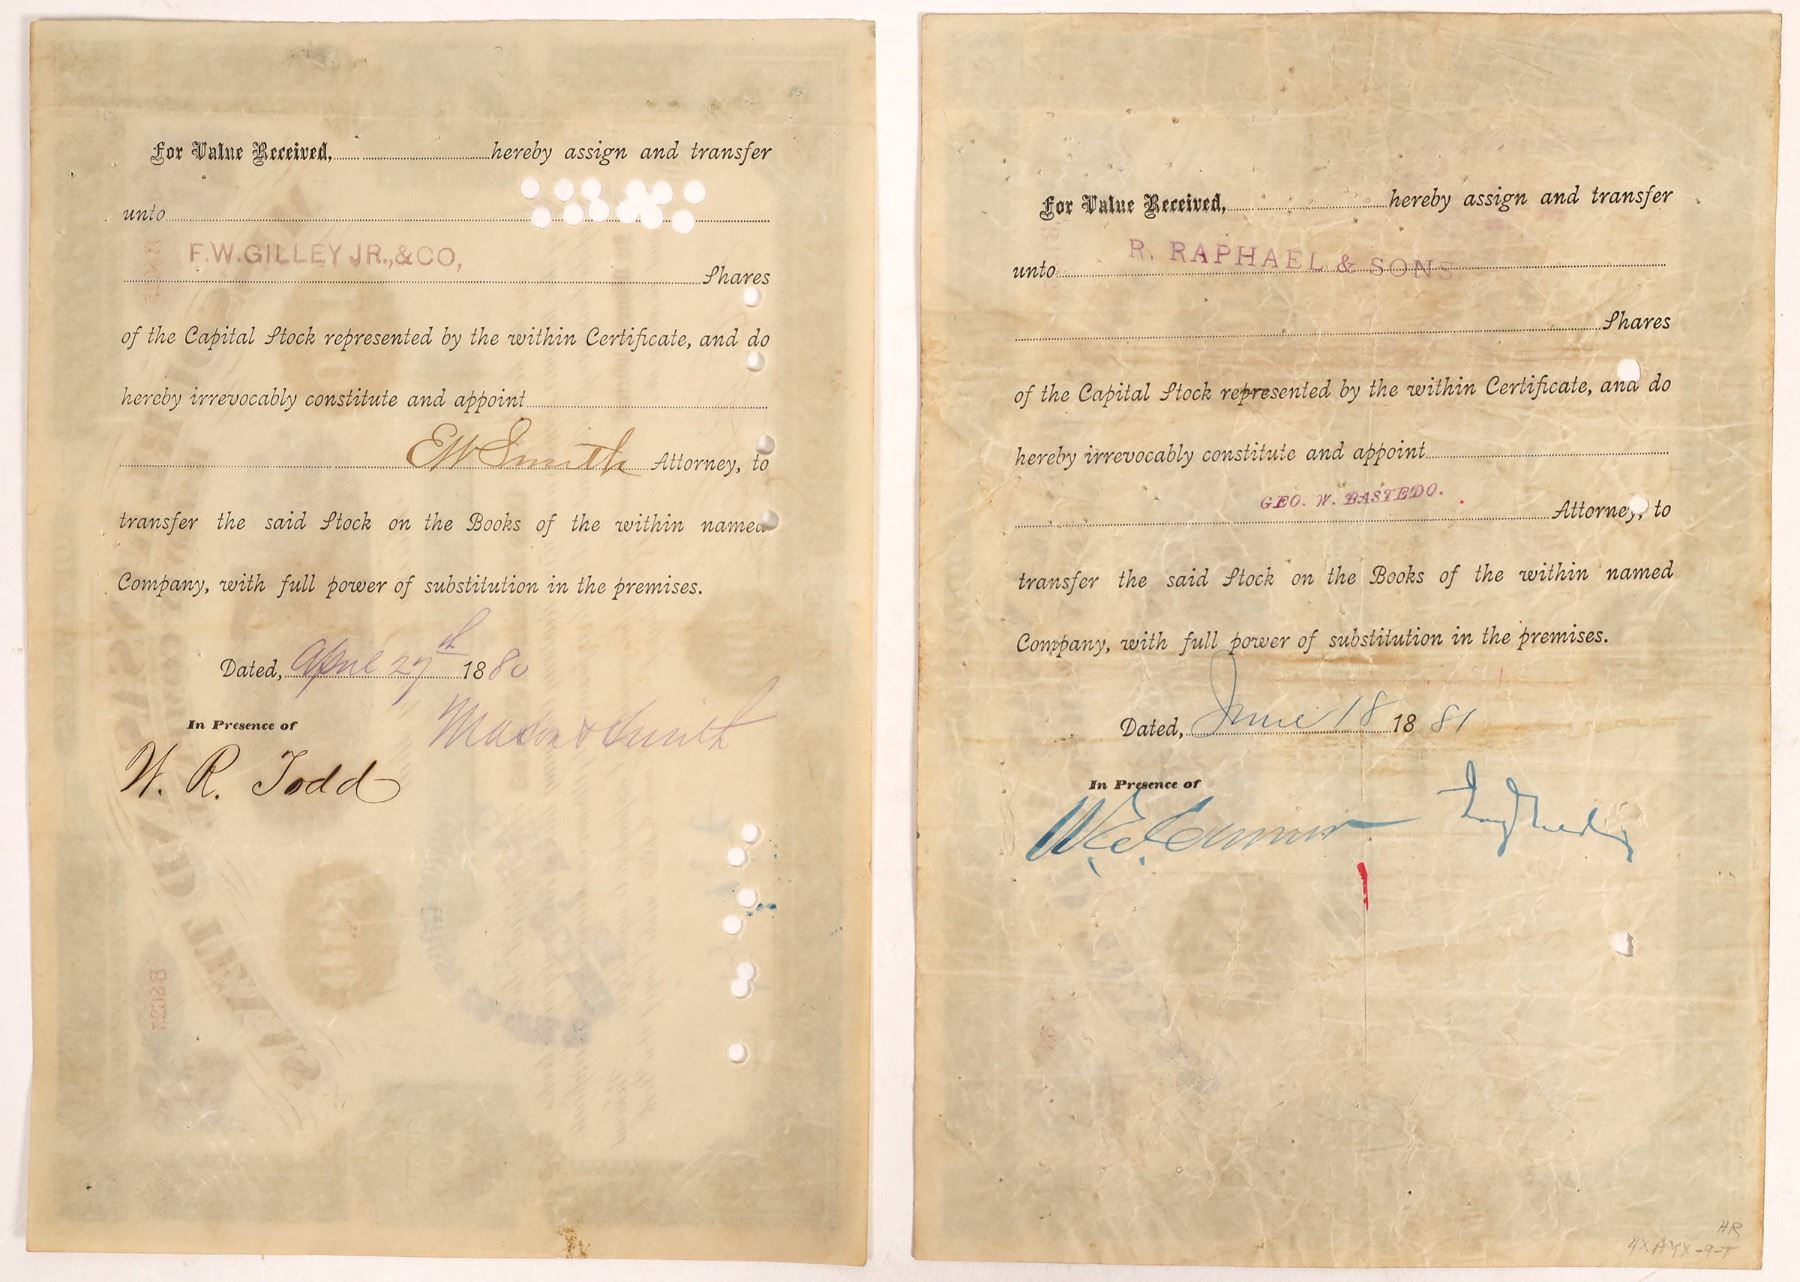 For Value Received, hereby assign and transfer
unto
F.W. GILLEY JR., & CO,
Shares
of the Capital Stock represented by the within Certificate, and do
hereby irrevocably constitute and appoint
EW Smith Attorney, to
transfer the said Stock on the Books of the within named
Company, with full power of substitution in the premises.
Dated, April 27th 1880
In Presence of
Mason & Smith
W. R. Todd
For Value Received, hereby assign and transfer
R. RAPHAEL & SONS
unto
Shares
of the Capital Stock represented by the within Certificate, and do
hereby irrevocably constitute and appoint
GEO. W. BASTEDO.
Attorney, to
transfer the said Stock on the Books of the within named
Company, with full power of substitution in the premises.
Dated, June 18 1881
In Presence of
HR